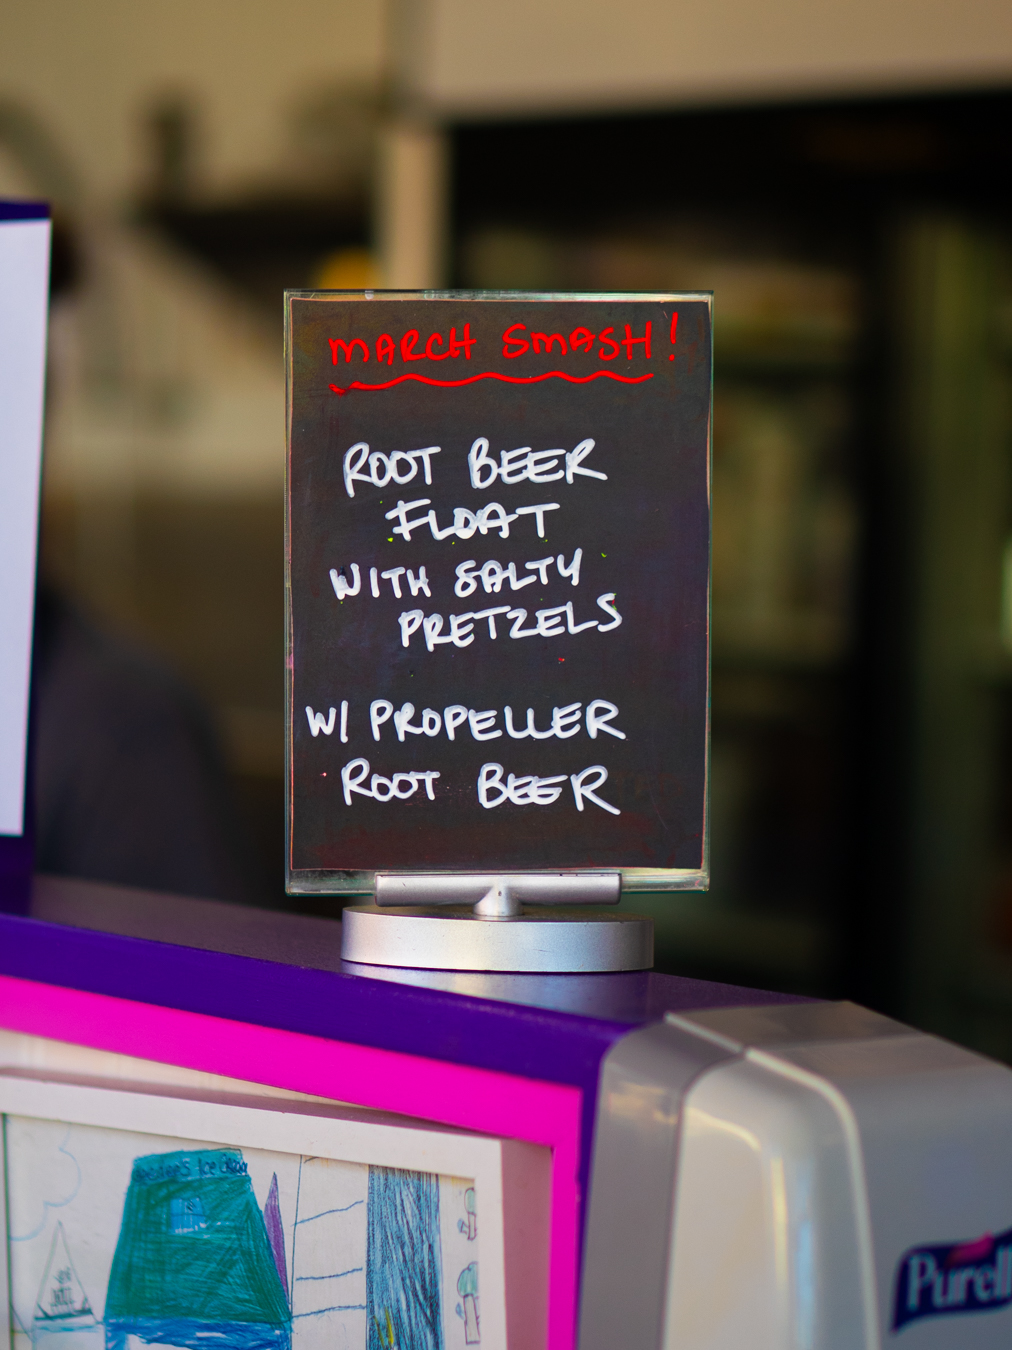 MARCH SMASH!
ROOT BEER
FLOAT
WITH SALTY
PRETZELS
W/ PROPELLER
ROOT BEER
ICE CREAM
Purell